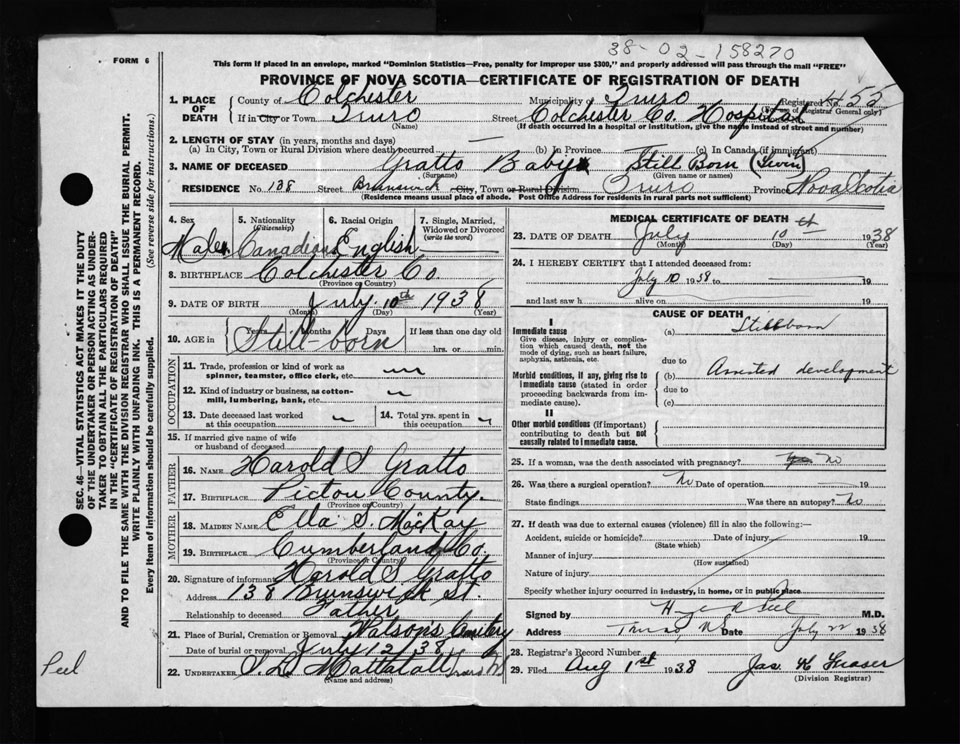 38-02-158270
FORM 6
This form if placed in an envelope, marked "Dominion Statistics—Free, penalty for improper use $300," and properly addressed will pass through the mail "FREE"
PROVINCE OF NOVA SCOTIA—CERTIFICATE OF REGISTRATION OF DEATH
1. PLACE OF DEATH
County of Colchester Municipality of Truro Registered No. 455
(For use of Registrar General only)
If in City or Town Truro Street Colchester Co. Hospital
(Name) (If death occurred in a hospital or institution, give the name instead of street and number)
2. LENGTH OF STAY (in years, months and days)
(a) In City, Town or Rural Division where death occurred (b) In Province (c) In Canada (if immigrant)
3. NAME OF DECEASED Gratto Baby Still Born (Twin)
(Surname) (Given name or names)
RESIDENCE No. 138 Street Brunswick City, Town or Rural Division Truro Province Nova Scotia
(Residence means usual place of abode. Post Office Address for residents in rural parts not sufficient)
4. Sex 5. Nationality (Citizenship) 6. Racial Origin 7. Single, Married, Widowed or Divorced (write the word)
Male Canadian English
8. BIRTHPLACE Colchester Co
(Province or Country)
9. DATE OF BIRTH July 10th 1938
(Month) (Day) (Year)
10. AGE in Years Months Days If less than one day old
Still-born hrs. or min.
OCCUPATION
11. Trade, profession or kind of work as spinner, teamster, office clerk, etc.
12. Kind of industry or business, as cotton-mill, lumbering, bank, etc.
13. Date deceased last worked at this occupation 14. Total yrs. spent in this occupation
15. If married give name of wife or husband of deceased
FATHER
16. NAME Harold S Gratto
17. BIRTHPLACE Pictou County.
(Province or Country)
MOTHER
18. MAIDEN NAME Ella S. MacKay
19. BIRTHPLACE Cumberland Co.
(Province or Country)
20. Signature of informant Harold S Gratto
Address 138 Brunswick St.
Relationship to deceased Father
21. Place of Burial, Cremation or Removal Watson's Cemetery
Date of burial or removal July 12/38
22. UNDERTAKER Mattatall Truro NS
(Name and address)
MEDICAL CERTIFICATE OF DEATH
23. DATE OF DEATH July 10 1938
(Month) (Day) (Year)
24. I HEREBY CERTIFY that I attended deceased from:
July 10 1938 to 19
and last saw h alive on 19
CAUSE OF DEATH
I
Immediate cause
Give disease, injury or complication which caused death, not the mode of dying, such as heart failure, asphyxia, asthenia, etc.
(a) Stillborn
due to
Morbid conditions, if any, giving rise to immediate cause (stated in order proceeding backwards from immediate cause).
(b) Arrested development
due to
(c)
II
Other morbid conditions (if important) contributing to death but not causally related to immediate cause.
25. If a woman, was the death associated with pregnancy? no
26. Was there a surgical operation? No Date of operation 19
State findings Was there an autopsy? No
27. If death was due to external causes (violence) fill in also the following:—
Accident, suicide or homicide? Date of injury 19
(State which)
Manner of injury
(How sustained)
Nature of injury
Specify whether injury occurred in industry, in home, or in public place
Signed by Peel M.D.
Address Truro, NS Date July 22 1938
28. Registrar's Record Number
29. Filed Aug 1st 1938 Jas. H Fraser
(Division Registrar)
SEC. 46—VITAL STATISTICS ACT MAKES IT THE DUTY
OF THE UNDERTAKER OR PERSON ACTING AS UNDER-
TAKER TO OBTAIN ALL THE PARTICULARS REQUIRED
IN THE "CERTIFICATE OF REGISTRATION OF DEATH"
AND TO FILE THE SAME WITH THE DIVISION REGISTRAR WHO SHALL ISSUE THE BURIAL PERMIT.
WRITE PLAINLY WITH UNFADING INK. THIS IS A PERMANENT RECORD.
Every item of information should be carefully supplied. (See reverse side for instructions.)
Peel